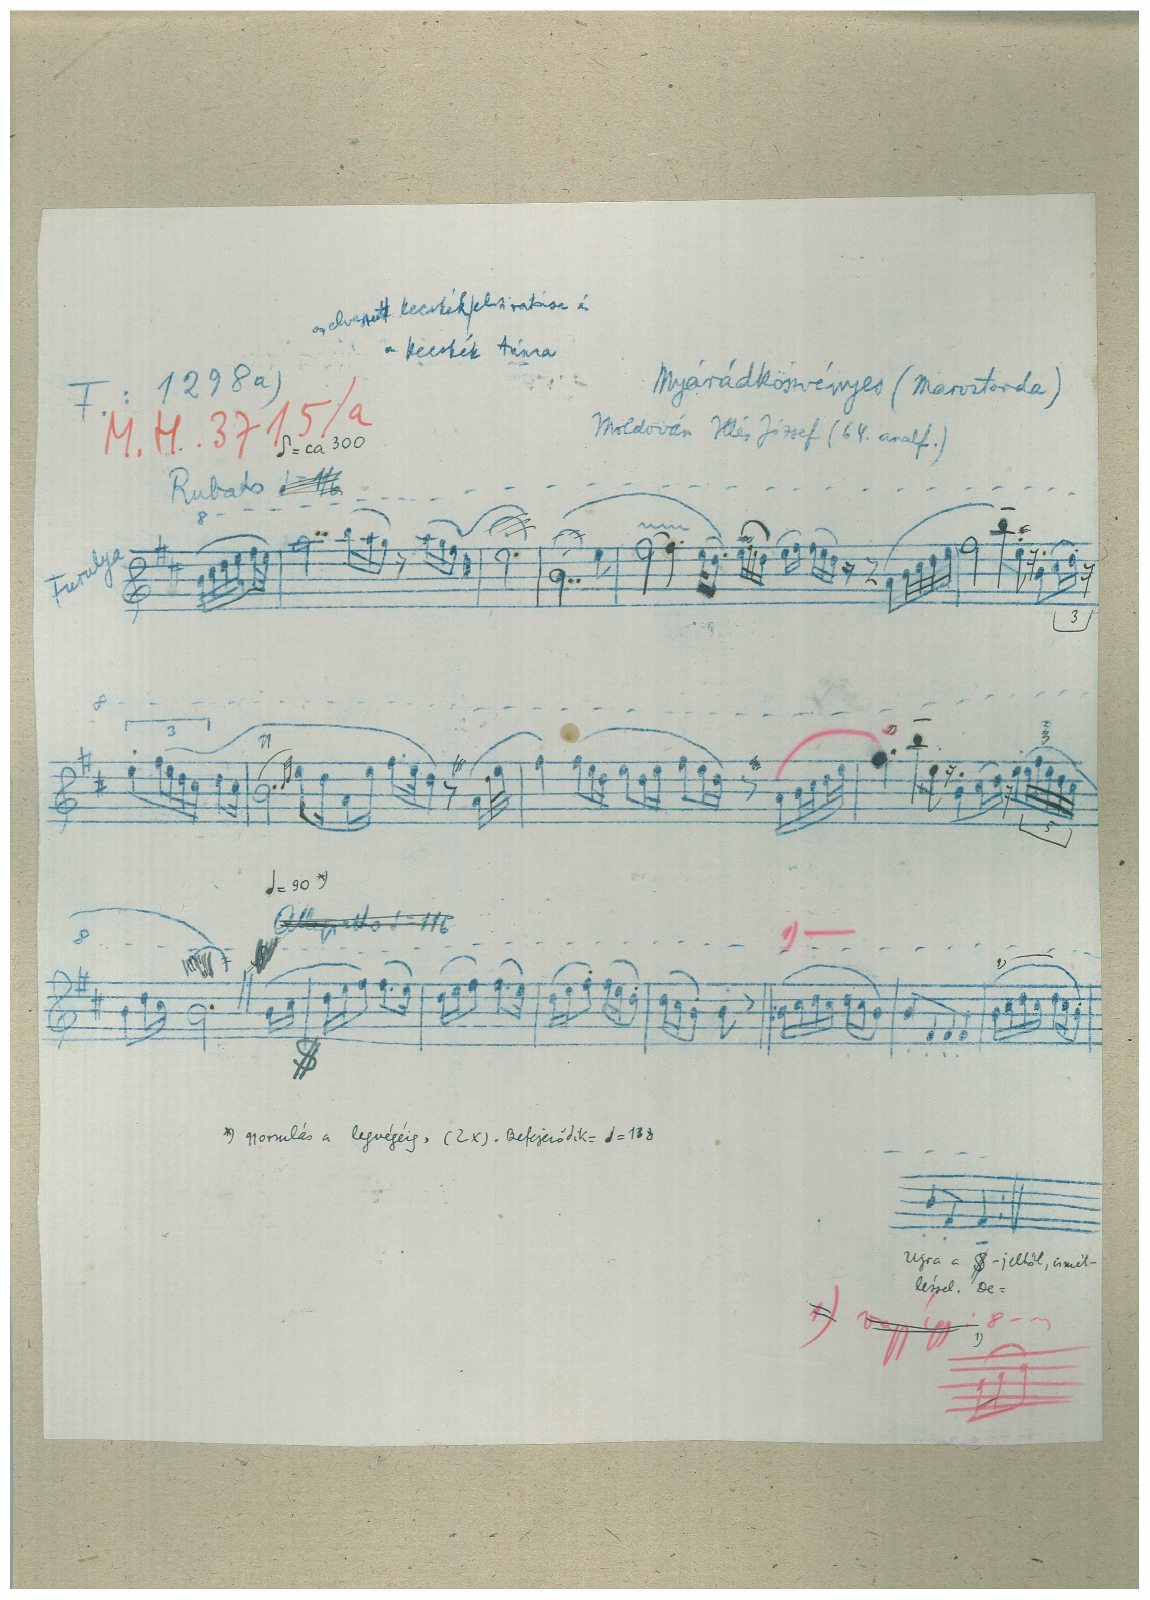 elveszett kecskék elsiratása és
a kecskék tánca
F.: 1298a)
M.H. 3715/a
♪= ca 300
Nyárádköszvényes (Marostorda)
Moldován Illés József (64. analf.)
Rubato
8
Furulya
3
8
3
5
♩= 90 *)
Allegretto ♩= 116
8
1)
*) Gyorsulás a legvégéig, (2x). Befejeződik= ♩= 138
Ugra a 𝄋-jeltől, ismét-
léssel. De=
1) vagy így: 8
1)